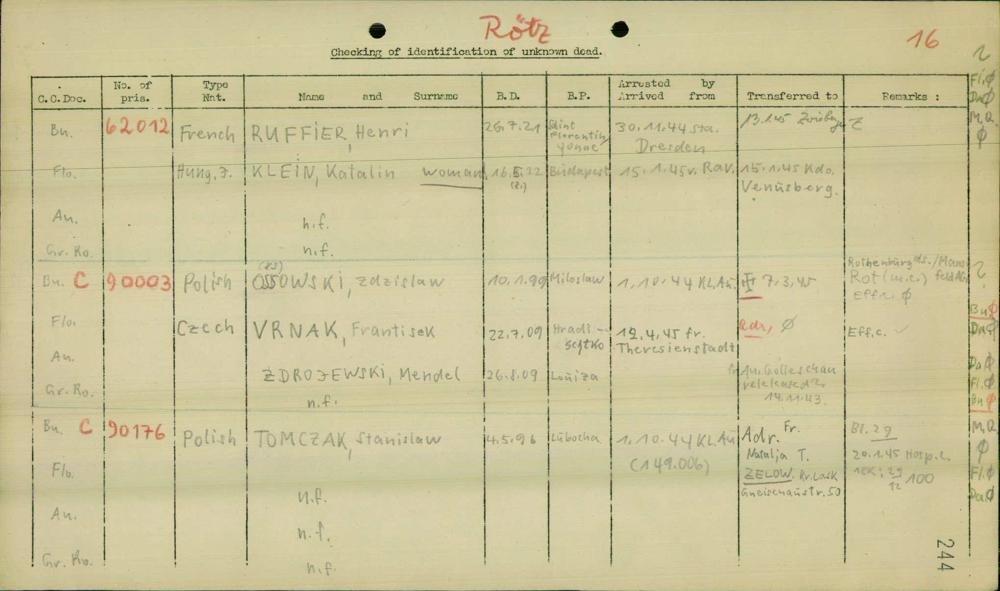 Rötz
16
Checking of identification of unknown dead.
C.C.Doc. No. of pris. Type Nat. Name and Surname B.D. B.P. Arrested by Arrived from Transferred to Remarks :
Bu. 62012 French RUFFIER, Henri 26.7.21 Saint Florentin Yonne 30.11.44 sta. Dresden 13.1.45
Flo. Hung. J. KLEIN, Katalin woman 16.5.22 Budapest 15.1.45 v. Rav. 15.1.45 Kdo. Venusberg.
Au. n.f.
Gr. Ro. n.f.
Bu. C 90003 Polish OSSOWSKI, Zdzislaw 10.1.99 Miloslaw 1.10.44 KL.Au. 7.3.45 Rot (m.c.) Eff.c. Ø
Flo. Czech VRNAK, Frantisek 22.7.09 Hradischtko 12.4.45 fr. Theresienstadt Ø Eff.c.
Au. ZDROJEWSKI, Mendel 26.8.09 Au. Golleschau released 14.11.43.
Gr. Ro. n.f.
Bu. C 90176 Polish TOMCZAK, Stanislaw 4.5.96 Lubocha 1.10.44 KL.Au (149.006) Adr. Fr. Natalja T. ZELOW. Kr. Lask Gneisenaustr. 50 Bl. 29 20.1.45 Hosp. 100
Flo.
n.f.
Au.
n.f.
Gr. Ro.
n.f.
Fl. Ø
Da Ø
M.Q.
Ø
Bu Ø
Da Ø
Da Ø
Fl. Ø
Bu Ø
M.Q.
Ø
Fl. Ø
Da Ø
244